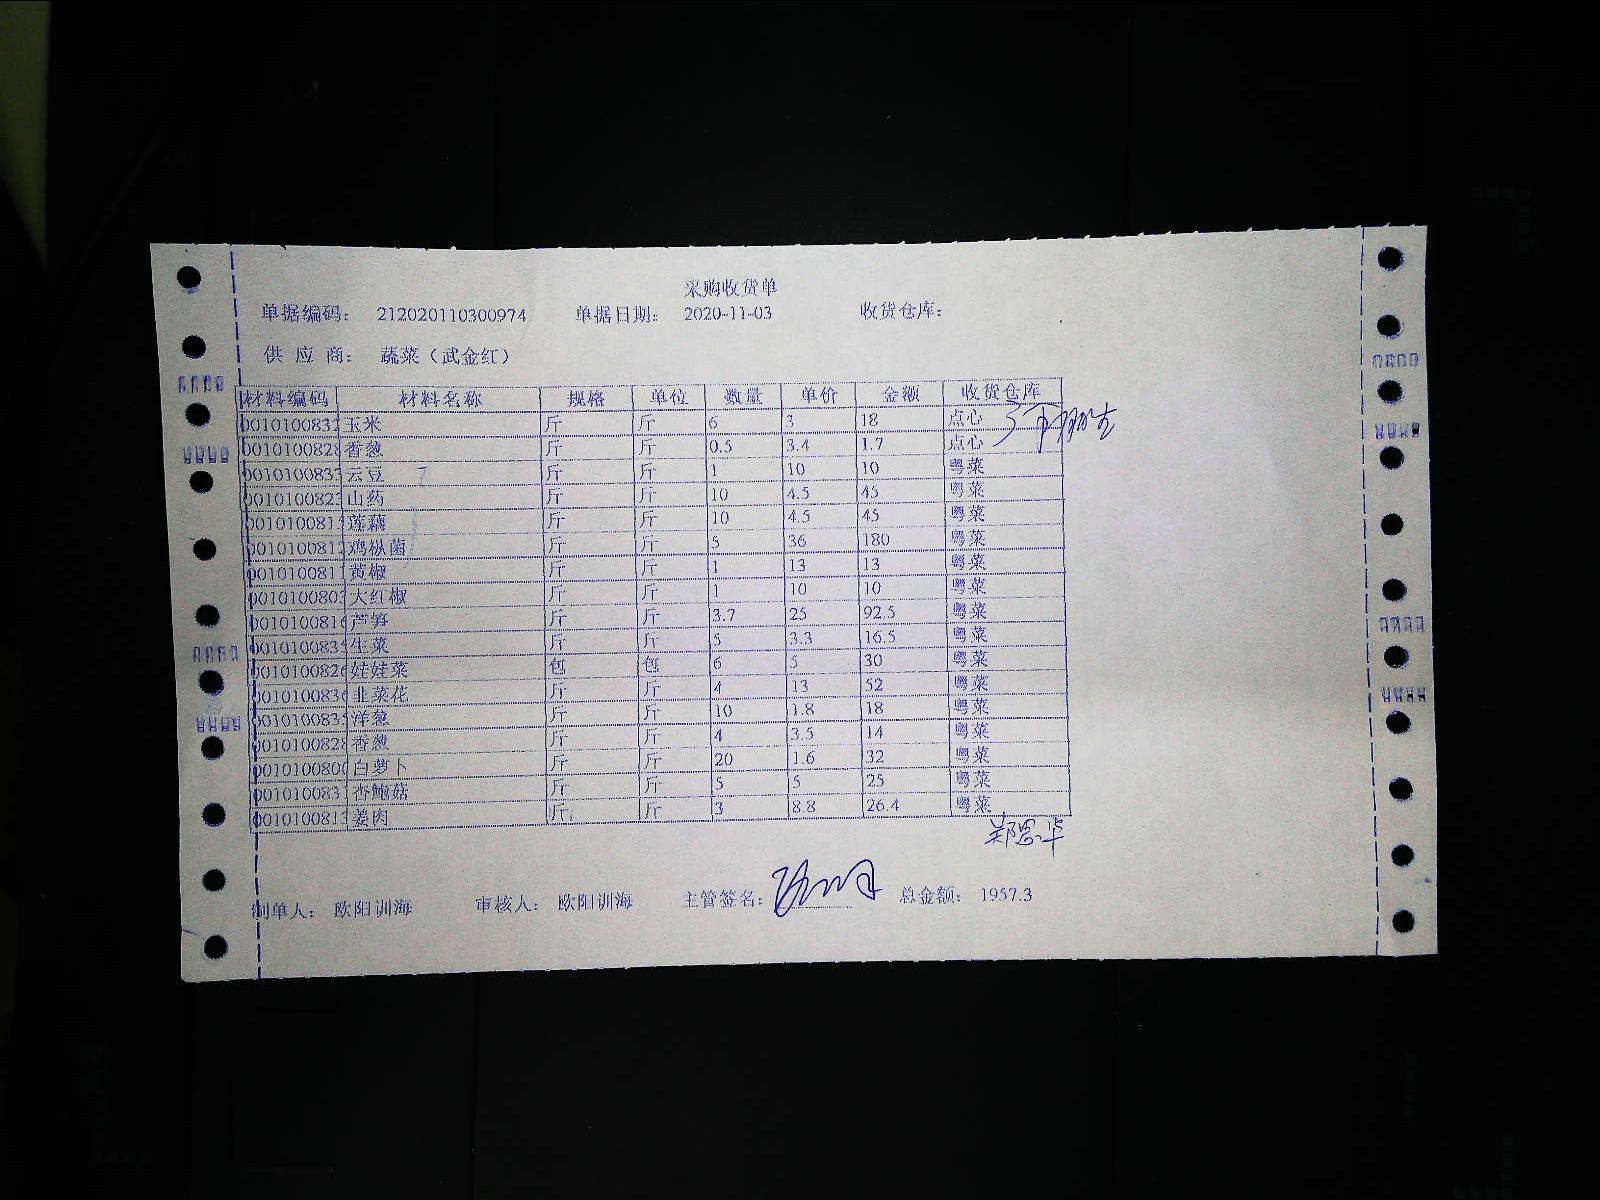 采购收货单
单据编码： 212020110300974 单据日期： 2020-11-03 收货仓库：
供 应 商： 蔬菜（武金红）
材料编码 材料名称 规格 单位 数量 单价 金额 收货仓库
0010100832 玉米 斤 斤 6 3 18 点心
0010100828 香葱 斤 斤 0.5 3.4 1.7 点心
001010083 云豆 斤 斤 1 10 10 粤菜
001010082 山药 斤 斤 10 4.5 45 粤菜
001010081 莲藕 斤 斤 10 4.5 45 粤菜
0010100812 鸡枞菌 斤 斤 5 36 180 粤菜
001010081 黄椒 斤 斤 1 13 13 粤菜
001010080 大红椒 斤 斤 1 10 10 粤菜
001010081 芦笋 斤 斤 3.7 25 92.5 粤菜
001010083 生菜 斤 斤 5 3.3 16.5 粤菜
001010082 娃娃菜 包 包 6 5 30 粤菜
001010083 韭菜花 斤 斤 4 13 52 粤菜
001010083 洋葱 斤 斤 10 1.8 18 粤菜
0010100828 香葱 斤 斤 4 3.5 14 粤菜
001010080 白萝卜 斤 斤 20 1.6 32 粤菜
001010083 杏鲍菇 斤 斤 5 5 25 粤菜
001010081 姜肉 斤 斤 3 8.8 26.4 粤菜
郑思华
制单人： 欧阳训海 审核人： 欧阳训海 主管签名： 总金额： 1957.3